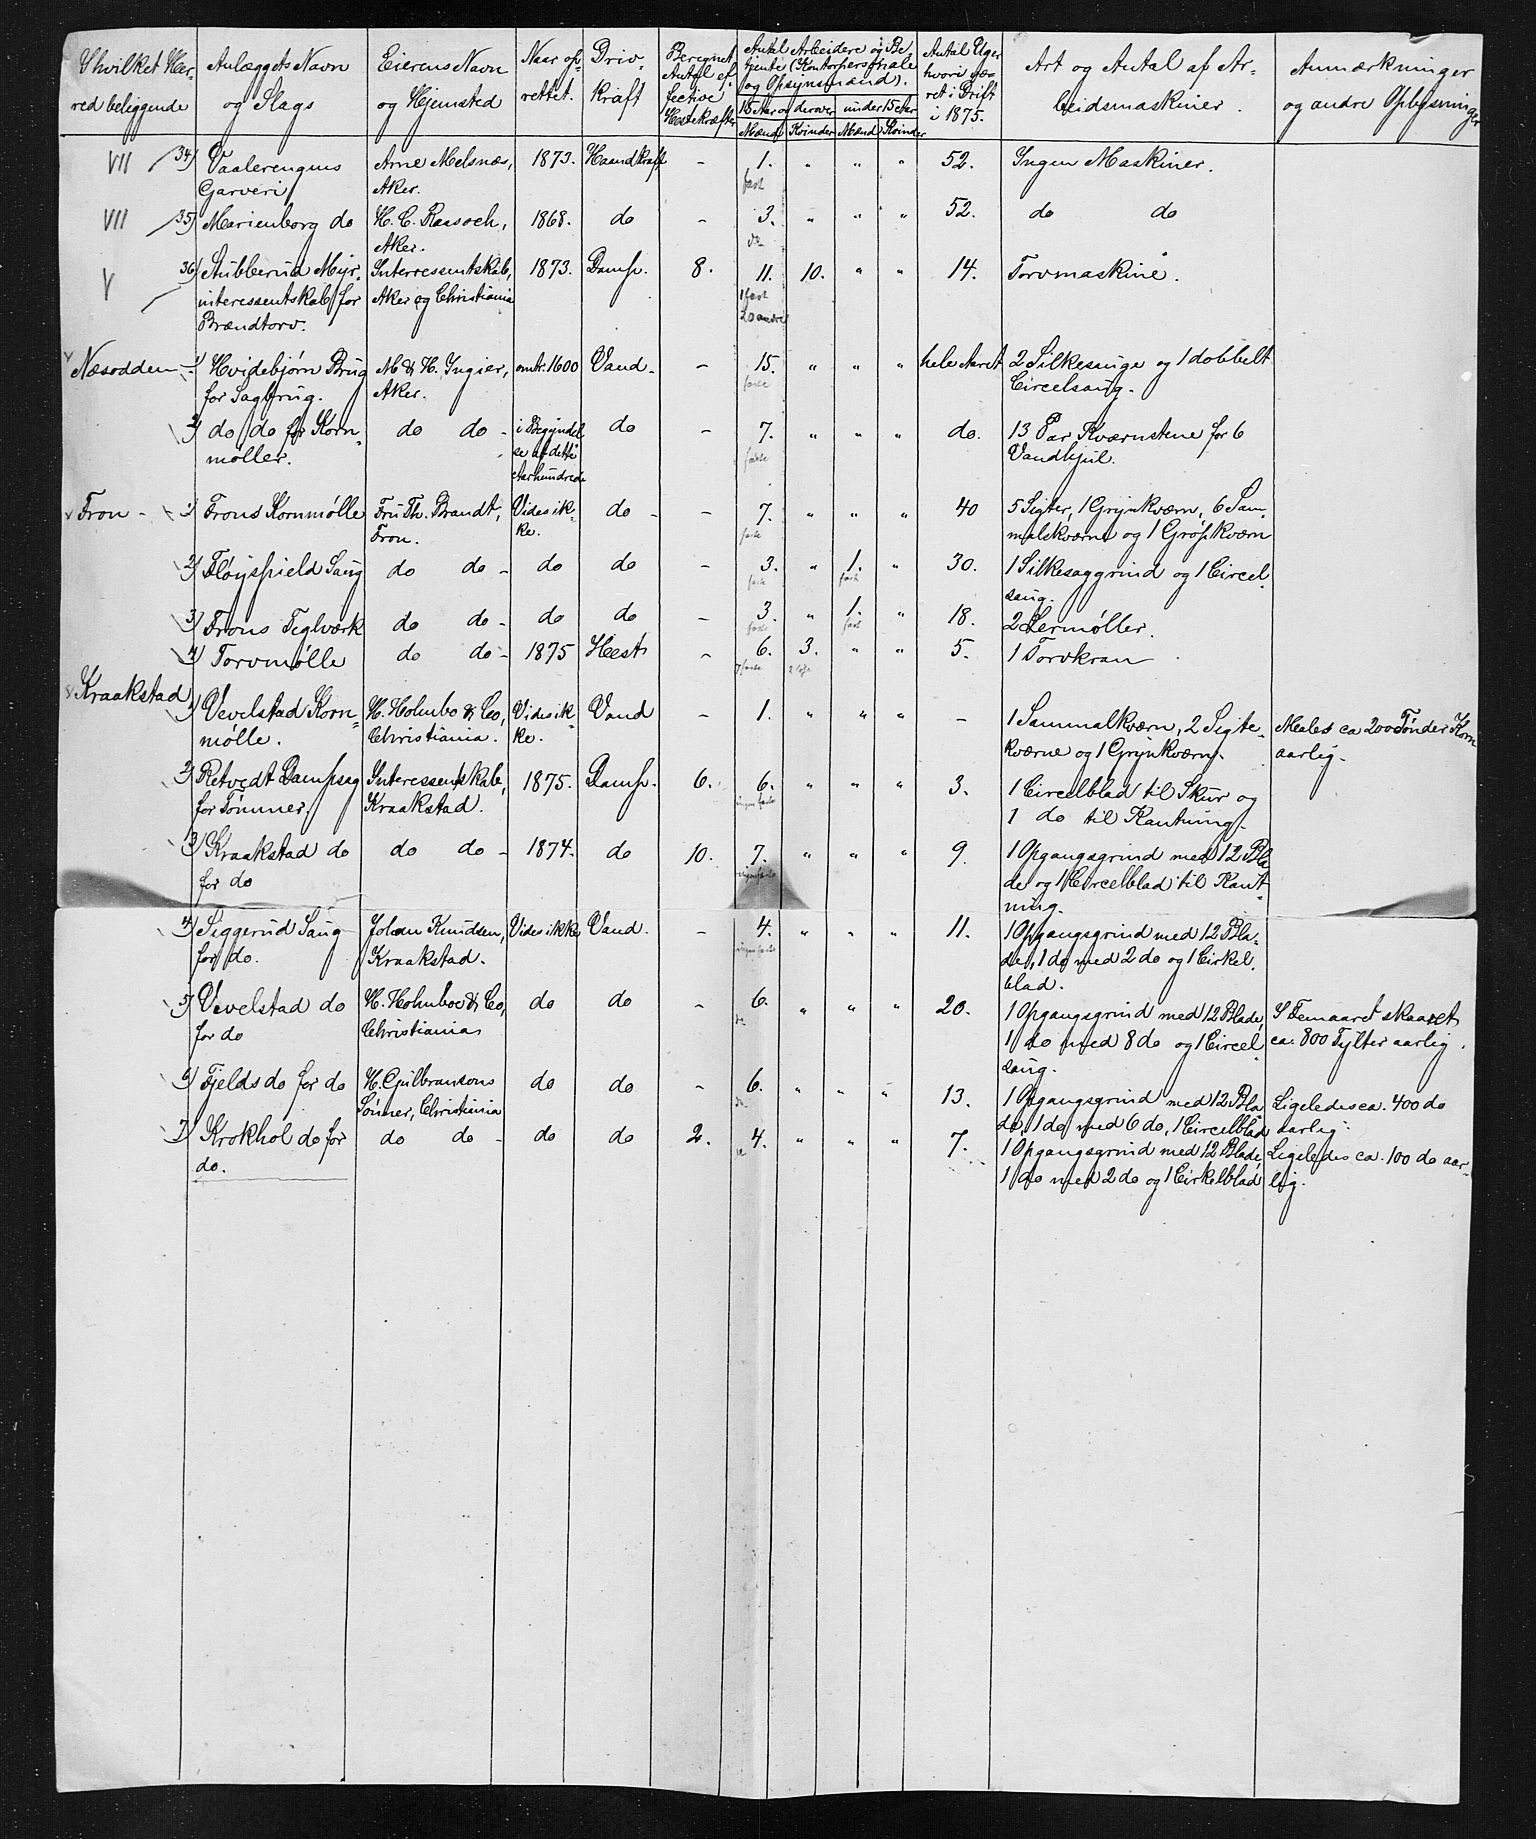 I hvilket Her- | Anlæggets Navn | Eierens Navn | Naar op- | Driv- | Beregnet | Antal Arbeidere og Be- | Antal Uger | Art og Antal af Ar- | Anmærkninger
red beliggende | og Slags | og Hjemsted | rettet. | kraft | Antal ef- | tjente (Kontorpersonale | hvori væ- | beidsmaskiner. | og andre Oplysninger
fective | og Opsynsmænd). | ret i Drift
Hestekræfter | 15 Aar og derover | under 15 Aar | i 1875.
Mænd | Kvinder | Mænd | Kvinder
VII | 34) Vaalerengens | Arne Melsnæs, | 1873. | Haandkraft | - | 1. | " | " | " | 52. | Ingen Maskiner.
Garveri | Aker. | fast
VII | 35) Marienborg do | H. C. Raasoch, | 1868. | do | - | 3. | " | " | " | 52. | do do
Aker. | do
V | 36) Stubberud Myr- | Interressentskab, | 1873. | Damp. | 8. | 11. | 10. | " | " | 14. | Torvmaskine.
interessentskab for | Aker og Christiania | 1 fast
Brændtorv. | 20 andre
Næsodden - | 1) Hvidebjørn Brug | M & H. Ingier, | omtr. 1600 | Vand - | - | 15. | " | " | " | hele Aaret | 2 Silkesauge og 1 dobbelt
for Sagbrug. | Aker. | faste | Circelsaug.
2) do do for Korn- | do do - | i Begyndel- | do | - | 7. | " | " | " | do. | 13 Par Kværnstene for 6
møller. | se af dette | faste | Vandhjul.
Aarhundrede
Fron - | 1) Frons Kornmølle | Fru Th. Brandt, | Vides ik- | do - | - | 7. | " | " | " | 40 | 5 Sigter, 1 Grynkværn, 6 Sam-
Fron. | ke. | faste | malskværne og 1 Grøpkværn
2) Fløyspield Saug | do do - | do | do | - | 3. | " | 1. | " | 30. | 1 Silkesaggrind og 1 Circel-
faste | fast | saug.
3) Frons Teglværk | do do - | do | do | - | 3. | " | 1. | " | 18. | 2 Lermøller.
faste | fast
4) Torvmølle | do do - | 1875 | Hest | - | 6. | 3. | " | " | 5. | 1 Torvkran
7 faste
Kraakstad | 1) Vevelstad Korn- | H. Holmbo & Co, | Vides ik- | Vand | - | 1. | " | " | " | - | 1 Sammalkværn, 2 Sigte- | Males ca 200 Tønder Korn
mølle. | Christiania. | ke. | kværne og 1 Grynkværn. | aarlig.
2) Retvedt Dampsag | Interessentskab, | 1875. | Damp. | 6. | 6. | " | " | " | 3. | 1 Circelblad til Skur og
for Tømmer. | Kraakstad. | ingen faste | 1 do til Kantning.
3) Kraakstad do | do do - | 1874. | do | 10. | 7. | " | " | " | 9. | 1 Opgangsgrind med 12 Bla-
for do | ingen faste | de og 1 Circelblad til Kant-
ning.
4) Siggerud Saug | Johan Knudsen, | Vides ikke | Vand. | - | 4. | " | " | " | 11. | 1 Opgangsgrind med 12 Bla-
for do. | Kraakstad. | ingen faste | de, 1 do med 2 do og 1 Cirkel-
blad.
5) Vevelstad do | H. Holmboe & Co, | do | do | - | 6. | " | " | " | 20. | 1 Opgangsgrind med 12 Blade, | I Femaaret skaaret
for do | Christiania | do | 1 do med 8 do og 1 Circel- | ca. 800 Tylter aarlig.
saug.
6) Fjelds do for do | H. Gulbransons | do | do | - | 6. | " | " | " | 13. | 1 Opgangsgrind med 12 Bla- | Ligeledes ca. 400 do
Sønner, Christiania | do | de, 1 do med 6 do, 1 Circelblad | aarlig.
7) Krokhol do for | do do - | do | do | 2. | 4. | " | " | " | 7. | 1 Opgangsgrind med 12 Blade, | Ligeledes ca. 100 do aar-
do. | 1 do med 2 do og 1 Cirkelblad | lig.